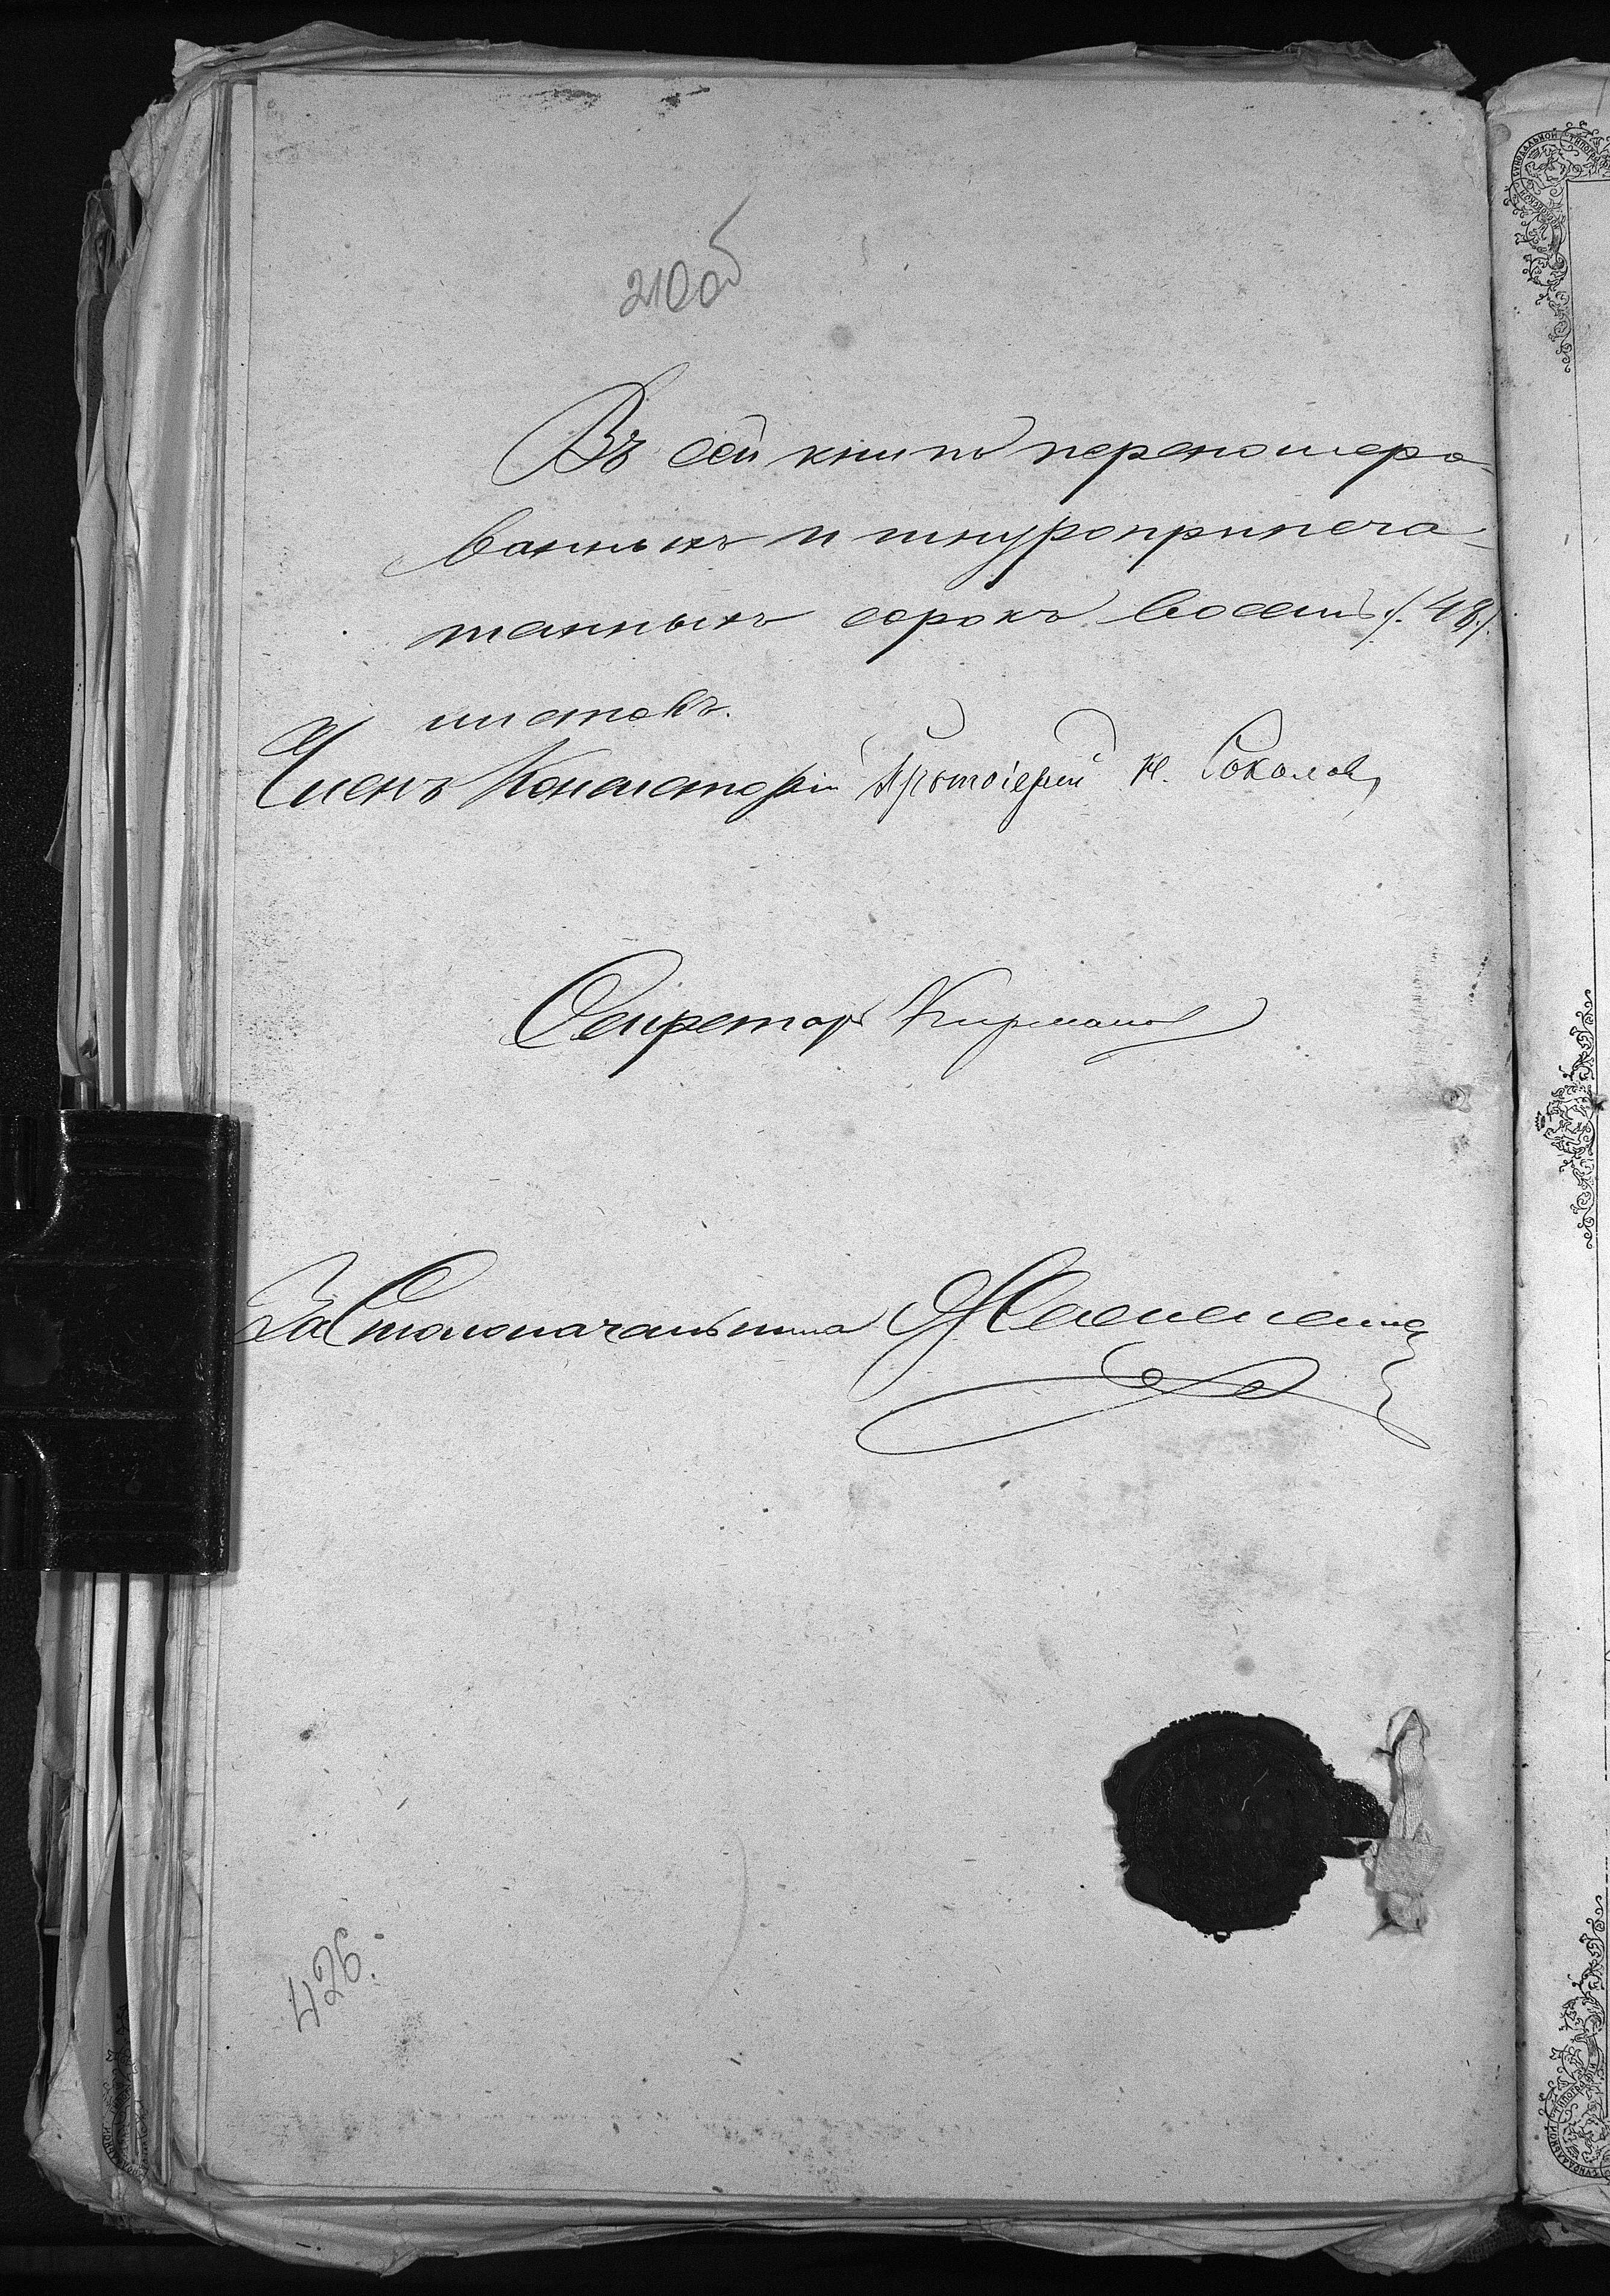 210об
Въ сей книгѣ перенумеро-
ванныхъ и шнуроприпеча-
танныхъ сорокъ восемь /. 48 ./
листовъ.
Членъ Консисторіи Протоіерей Н. Соколовъ
Секретарь
За Столоначальника
426.